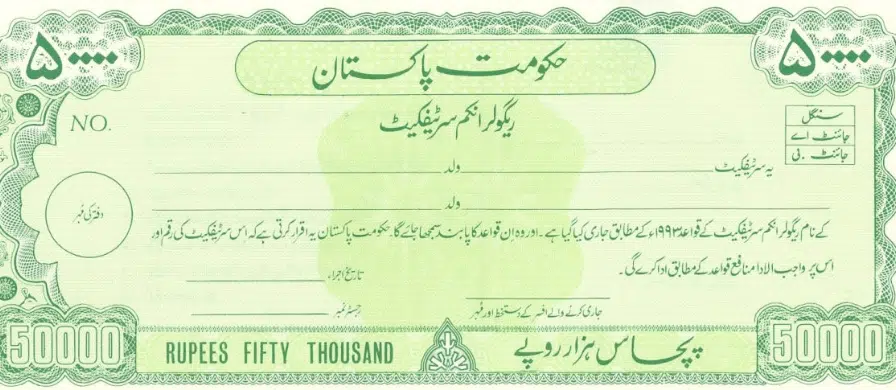 ۵۰۰۰۰ ۵۰۰۰۰
حکومت پاکستان
ریگولر انکم سرٹیفکیٹ
NO.
سنگل
جائنٹ اے
جائنٹ بی
یہ سرٹیفکیٹ ولد
ولد
کے نام ریگولر انکم سرٹیفکیٹ کے قواعد ۱۹۹۳ء کے مطابق جاری کیا گیا ہے۔ اور وہ اِن قواعد کا پابند سمجھا جائے گا۔ حکومت پاکستان یہ اقرار کرتی ہے کہ اس سرٹیفکیٹ کی رقم اور
اس پر واجب الادا منافع قواعد کے مطابق ادا کرے گی۔
دفتر کی مُہر
تاریخ اجراء
جاری کرنے والے افسر کے دستخط اور مُہر
رجسٹر نمبر
50000 RUPEES FIFTY THOUSAND پچاس ہزار روپے 50000